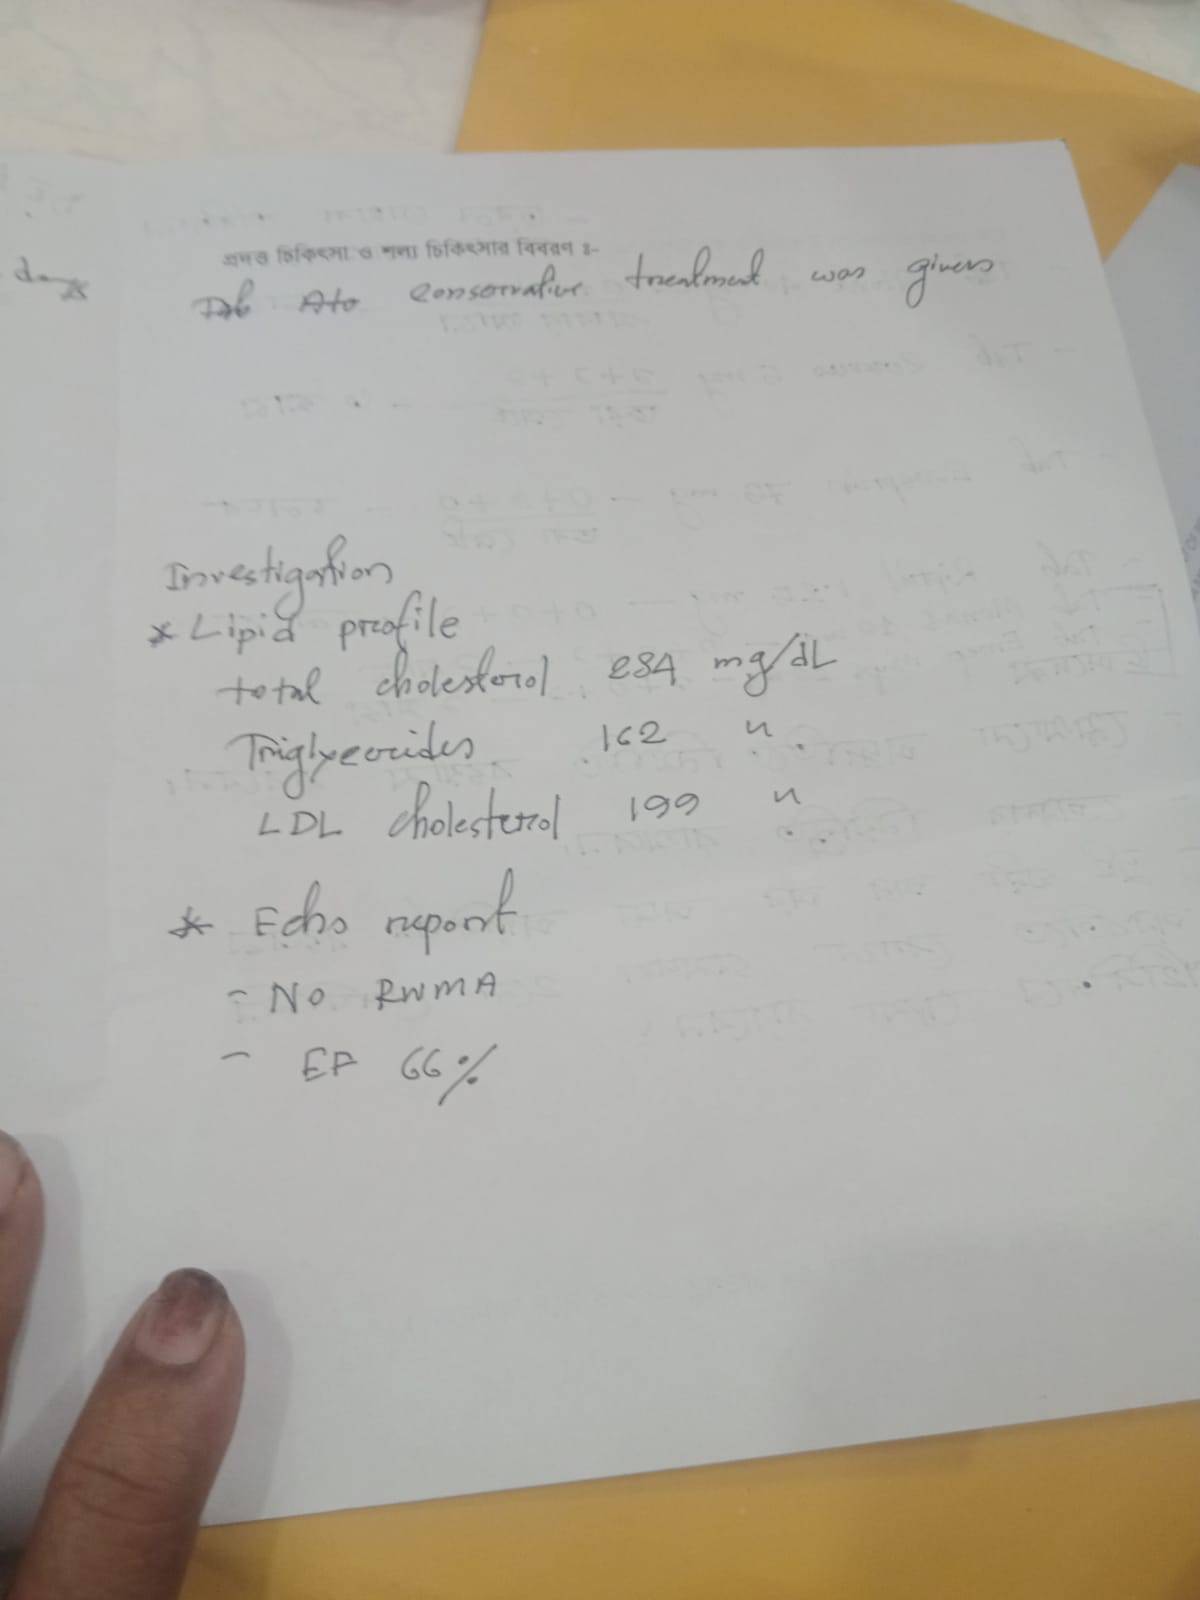 প্রদত্ত চিকিৎসা ও শল্য চিকিৎসার বিবরণ ঃ-
conservative treatment was given
Investigation
* Lipid profile
total cholesterol 284 mg/dL
Triglycerides 162 "
LDL cholesterol 199 "
* Echo report
- No RWMA
- EF 66%